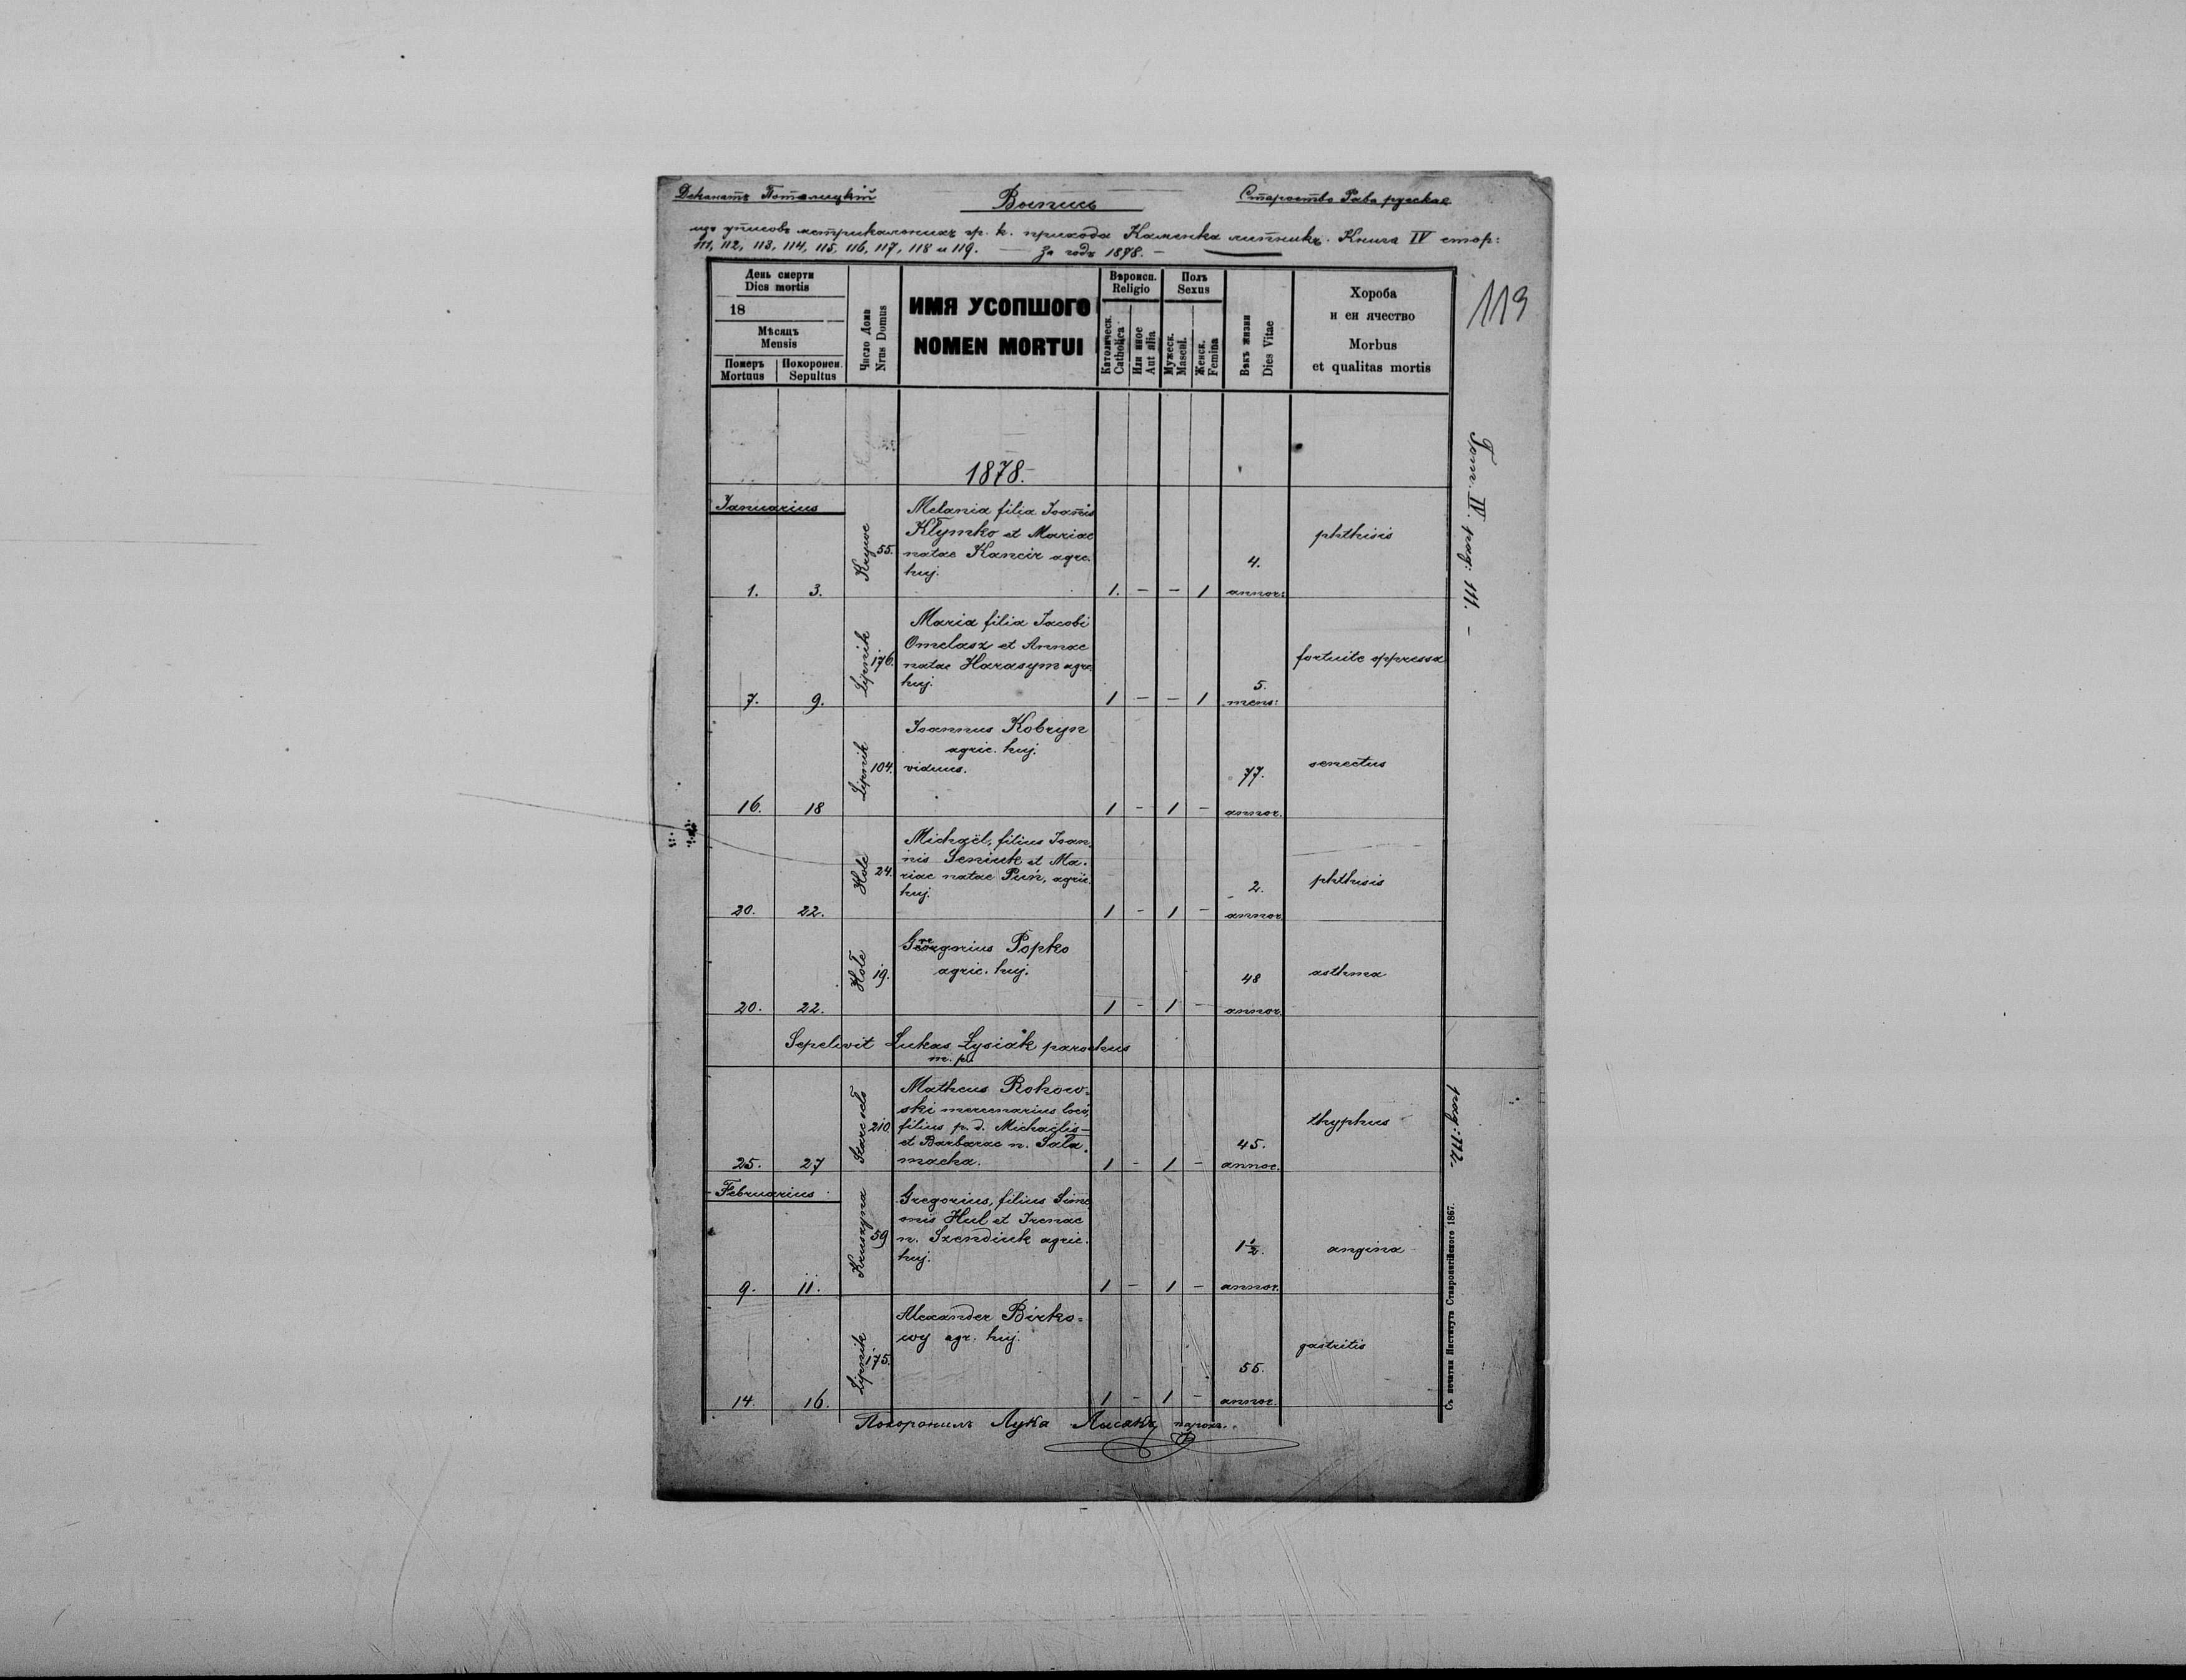 Деканатъ Потелицкій
Выпись
Староство Рава руская
изъ уписовъ метрикальныхъ гр. к. прихода Каменка липникъ. Книга IV стор:
111, 112, 113, 114, 115, 116, 117, 118 и 119. — За годъ 1878. —
День смерти
Dies mortis
18
Мѣсяцъ
Mensis
Померъ
Mortuus
Похоронен.
Sepultus
Число Дома
Nrus Domus
ИМЯ УСОПШОГО
NOMEN MORTUI
Вѣроисп.
Religio
Католическ.
Catholica
Или иное
Aut alia
Полъ
Sexus
Мужеск.
Mascul.
Женск.
Femina
Вѣкъ жизни
Dies Vitae
Хороба
и еи ячество
Morbus
et qualitas mortis
119
Tom. IV. pag: 111. —
1878.
Januarius
1. 3. Krupoc 55.
Melania filia Joanis
Kłymko et Mariae
natae Kancir agric.
huj.
1. — — 1
4.
annor:
phthisis
7. 9. Lipnik 176.
Maria filia Jacobi
Omelasz et Annae
natae Harasym agric.
huj.
1 — — 1
5.
mens:
fortuite oppressa
16. 18 Lipnik 104.
Joannus Kobryn
agric. huj.
viduus.
1 - 1 -
77.
annor.
senectus
20. 22. Hole 24.
Michaël, filius Joan-
nis Seniuk et Ma-
riae natae Puń, agric.
huj.
1 - 1 -
2.
annor.
phthisis
20. 22. Hole 19.
Gregorius Popko
agric. huj.
1 - 1 -
48
annor.
asthma
Sepelivit Lukas Łysiak parochus
m. p.
pag: 112.
25. 27 Staresele 210
Matheus Rokow-
ski mercenarius loco,
filius p. d. Michaelis —
et Barbarae n. Sała-
macha.
1 - 1 -
45.
annor.
thyphus
Februarius
9. 11. Kruszyna 59
Gregorius, filius Sime-
onis Hul et Irenae
n. Szendiuk agric.
huj.
1 - 1 -
1 1/2.
annor.
angina
14. 16. Lipnik 175.
Alexander Birko=
wy agr. huj.
1 - 1 -
55.
annor.
gastritis
Похоронилъ Лука Лысякъ парохъ.
Съ печатни Института Ставропигійского 1867.